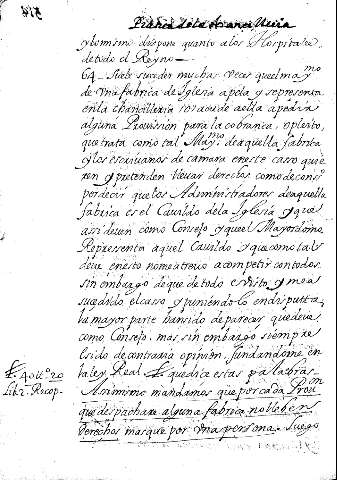 y lo mismo dispone quanto a los Hospitales
de todo el Reyno
64. Suele suceder muchas veces que el maymo
de vna fabrica de Iglesia apela y se presenta
en la chancilleria o acude a ella a pedir
alguna Provision para la cobranca, o pleyto
que trata como tal Maymo de aquella fabrica
y los escrivanos de camara en este caso quie
ren y pretenden llevar derechos como de consº
por decir que los Administradores de aquella
fabrica es el Cavildo de la Iglesia y que
asi deven como Consejo y que el Mayordomo
Representa aquel Cavildo y que como tal
deve en esto
sin embargo de que de todo e visto y me a
sucedido el casso y puniendolo en disputa
la mayor parte han sido de parecer que deve
como Consejo. mas sin embargo siempre
e sido de contraria opinion, fundandome en
la ley Real que dice estas palabras
Asimismo mandamos que por cada Provon
que despachare alguna fabrica no lleben
derechos mas que por vna persona. Luego
L. 40 tº 20
Lib. 2. Recop.